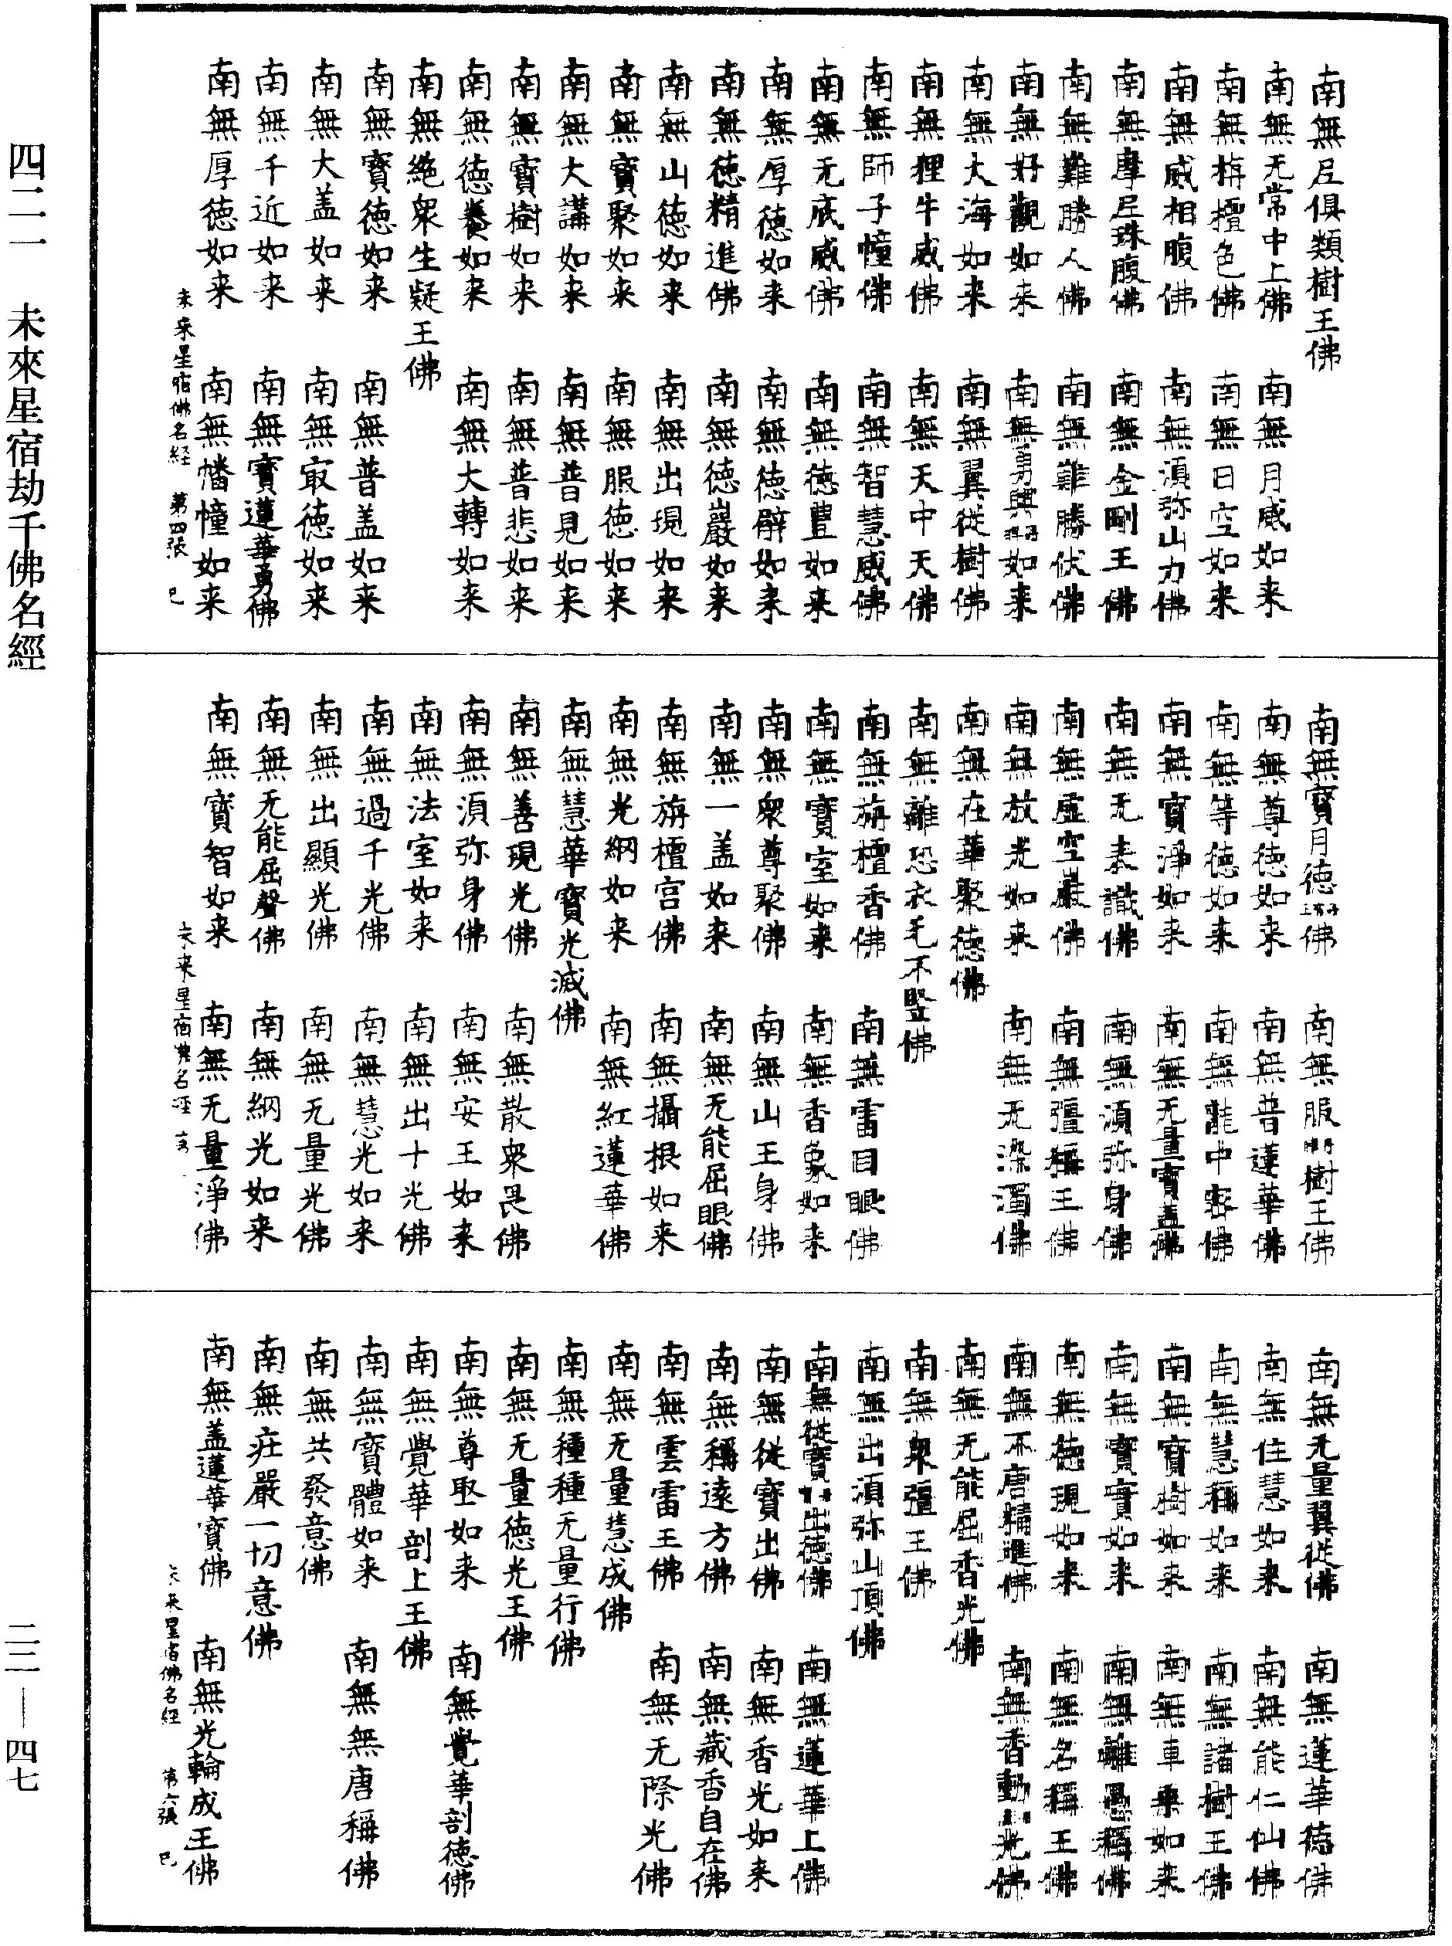 南無尼俱類樹王佛
南無无常中上佛　南無月威如来
南無栴檀色佛　南無日空如来
南無威相腹佛　南無湏弥山力佛
南無摩尼珠腹佛　南無金剛王佛
南無難勝人佛　南無難勝伏佛
南無好觀如来　南無勇興如来
南無大海如来　南無翼従樹佛
南無狸牛威佛　南無天中天佛
南無師子幢佛　南無智慧威佛
南無无底威佛　南無徳豊如来
南無厚徳如来　南無徳辟如来
南無徳精進佛　南無徳巖如来
南無山徳如来　南無出現如来
南無寶聚如来　南無服徳如来
南無大講如来　南無普見如来
南無寶樹如来　南無普悲如来
南無徳養如来　南無大轉如来
南無絶衆生疑王佛
南無寶徳如来　南無普盖如来
南無大盖如来　南無㝡徳如来
南無千近如来　南無寶蓮華勇佛
南無厚徳如来　南無幡幢如来
未来星宿佛名経　第四張　已
南無寶月徳佛　南無服樹王佛
南無尊徳如来　南無普蓮華佛
南無等徳如来　南無龍中密佛
南無寶淨如来　南無无量寶盖佛
南無无表識佛　南無湏弥身佛
南無虚空巖佛　南無彊稱王佛
南無放光如来　南無无染濁佛
南無在華聚徳佛
南無離恐衣毛不竪佛
南無旃檀香佛　南無雷目眼佛
南無寶室如来　南無香象如来
南無衆尊聚佛　南無山王身佛
南無一盖如来　南無无能屈眼佛
南無旃檀宫佛　南無攝根如来
南無光網如来　南無紅蓮華佛
南無慧華寶光滅佛
南無善現光佛　南無散衆畏佛
南無湏弥身佛　南無安王如来
南無法室如来　南無出十光佛
南無過千光佛　南無慧光如来
南無出顯光佛　南無无量光佛
南無无能屈聲佛　南無網光如来
南無寶智如来　南無无量淨佛
未来星宿佛名経
南無无量翼従佛　南無蓮華徳佛
南無住慧如来　南無能仁仙佛
南無慧稱如来　南無諸樹王佛
南無寶樹如来　南無車乗如来
南無寶實如来　南無離愚稱佛
南無徳現如来　南無名稱王佛
南無不唐精進佛　南無香動光佛
南無无能屈香光佛
南無衆彊王佛
南無出湏弥山頂佛
南無従寶出徳佛　南無蓮華上佛
南無従寶出佛　南無香光如来
南無稱遠方佛　南無蔵香自在佛
南無雲雷王佛　南無无際光佛
南無无量慧成佛
南無種種无量行佛
南無无量徳光王佛
南無尊㝡如来　南無覺華剖徳佛
南無覺華剖上王佛
南無寶體如来　南無無唐稱佛
南無共發意佛
南無莊嚴一切意佛
南無盖蓮華寶佛　南無光輪成王佛
未来星宿佛名経　第六張　已
四二一　未來星宿劫千佛名經
二二—四七